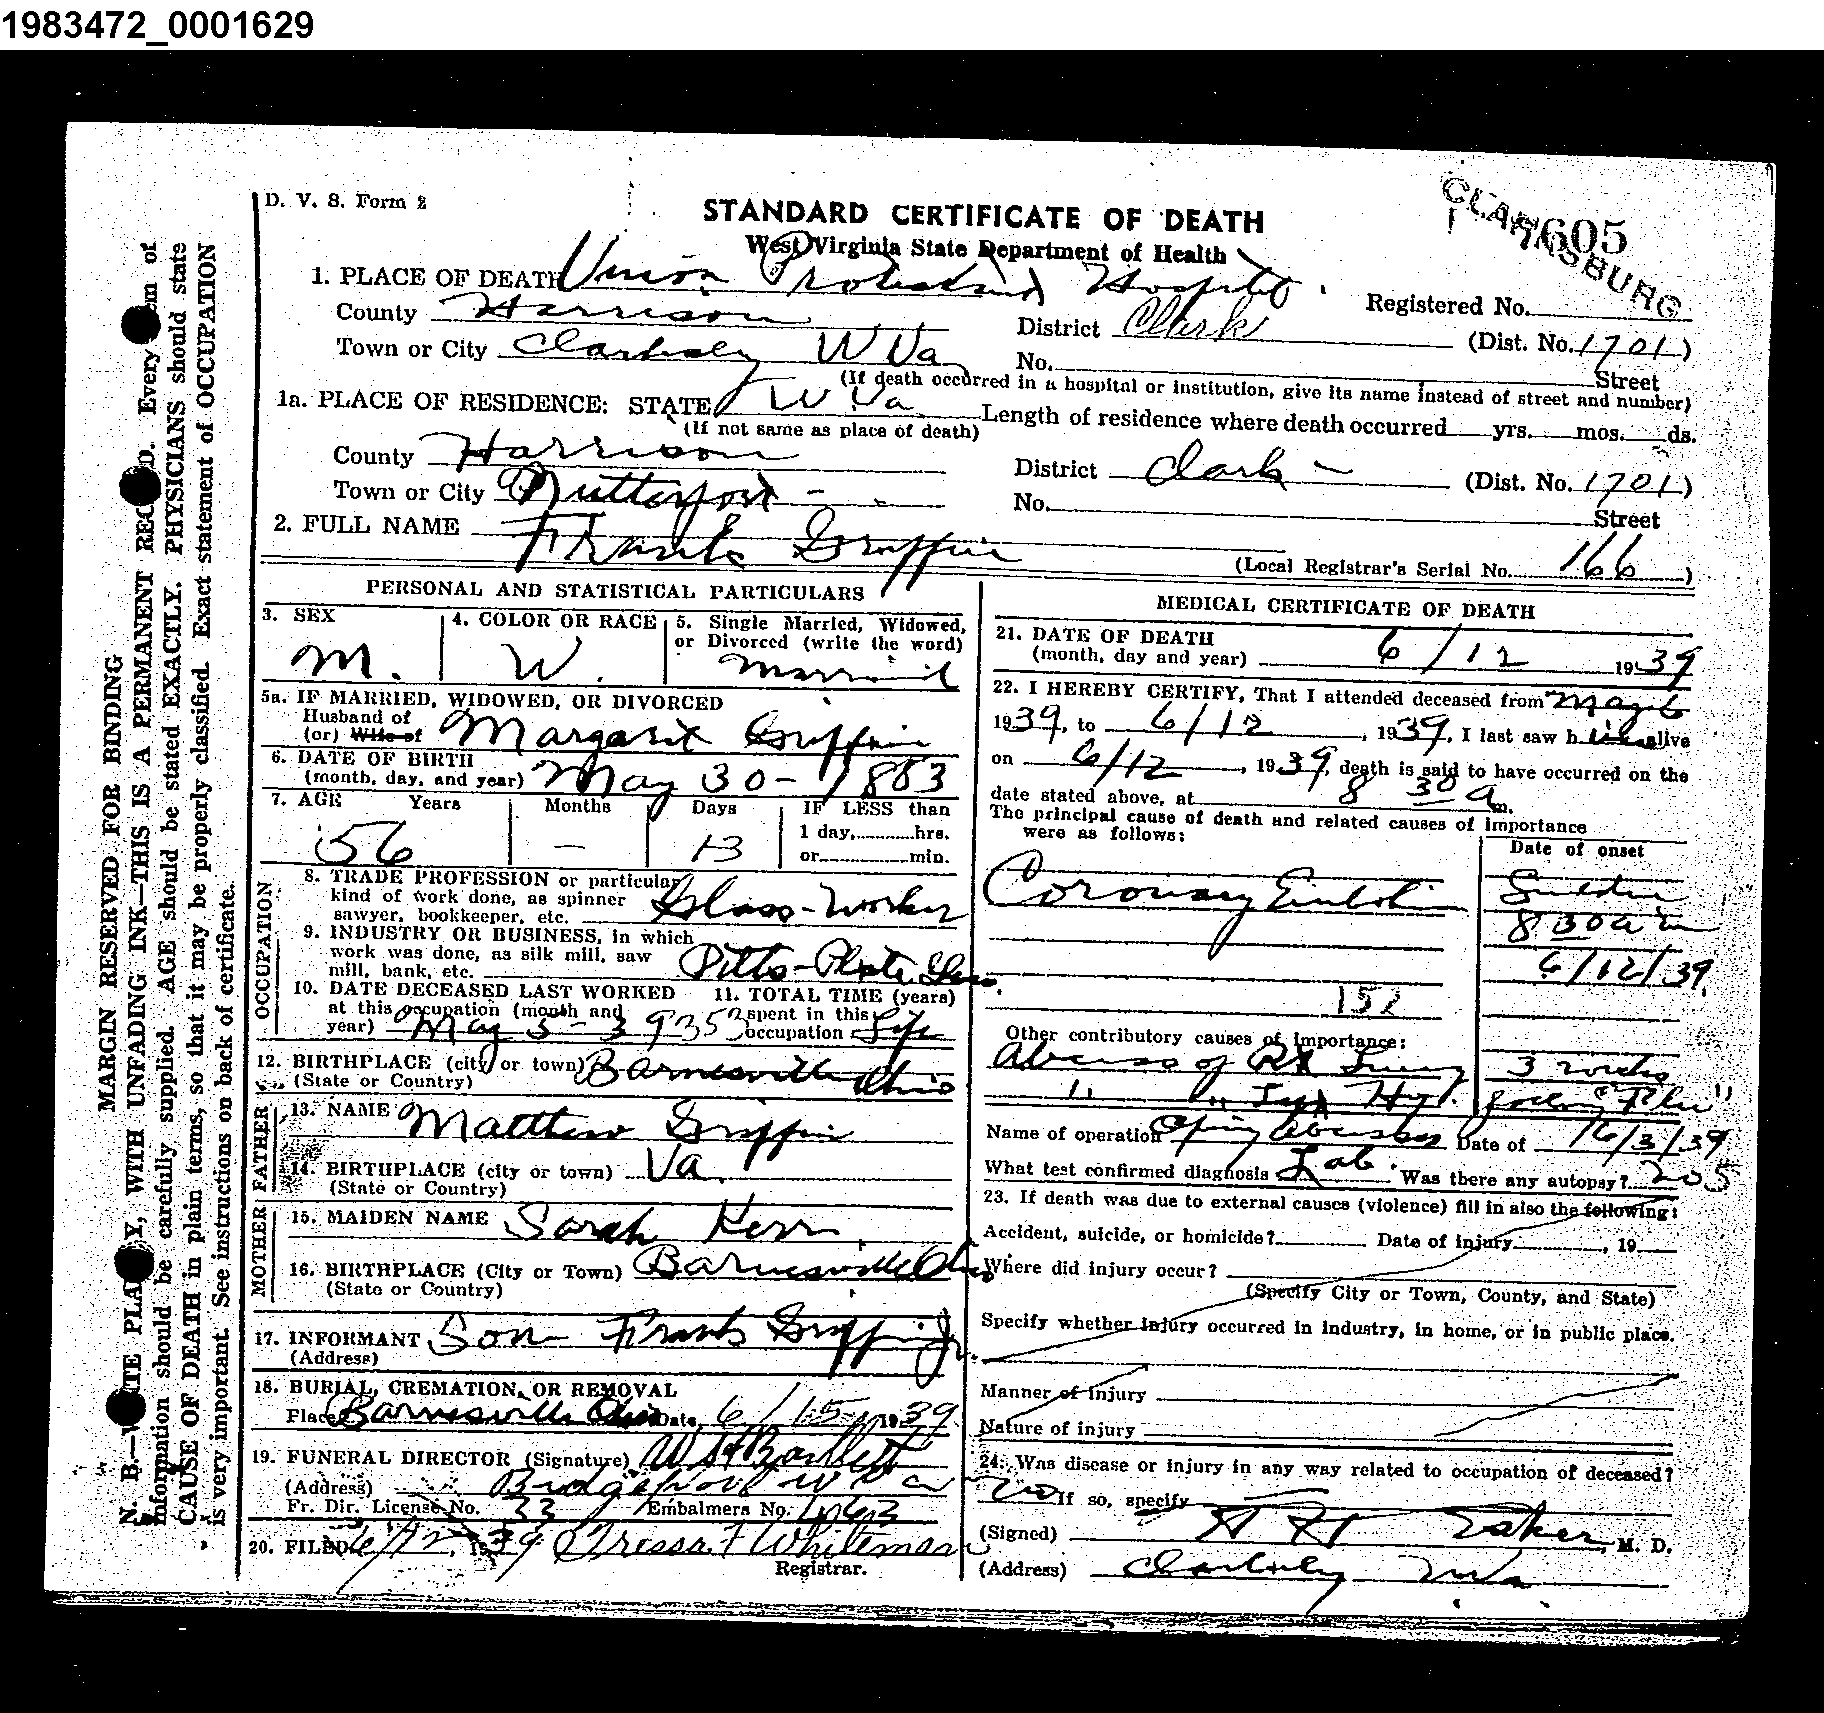 1983472_0001629
D. V. S. Form 2
STANDARD CERTIFICATE OF DEATH
West Virginia State Department of Health
CLARKSBURG
7605
1. PLACE OF DEATH Union Protestant Hospital
Registered No.
County Harrison District Clark (Dist. No. 1701)
Town or City W Va No. Street
(If death occurred in a hospital or institution, give its name instead of street and number)
1a. PLACE OF RESIDENCE: STATE W Va Length of residence where death occurred yrs. mos. ds.
(If not same as place of death)
County Harrison District Clark - (Dist. No. 1701)
Town or City Nutterfort - - No. Street
2. FULL NAME Frank Griffin
(Local Registrar's Serial No. 166)
PERSONAL AND STATISTICAL PARTICULARS
3. SEX 4. COLOR OR RACE 5. Single Married, Widowed,
or Divorced (write the word)
M. W. Married
5a. IF MARRIED, WIDOWED, OR DIVORCED
Husband of
(or) Wife of Margaret Griffin
6. DATE OF BIRTH
(month, day, and year) May 30 - 1883
7. AGE Years Months Days IF LESS than
1 day, hrs.
or min.
56 - 13
OCCUPATION
8. TRADE PROFESSION or particular
kind of work done, as spinner
sawyer, bookkeeper, etc. Glass-Worker
9. INDUSTRY OR BUSINESS, in which
work was done, as silk mill, saw
mill, bank, etc. Pitts-Plate Glass.
10. DATE DECEASED LAST WORKED 11. TOTAL TIME (years)
at this occupation (month and spent in this
year) May 5-39 353 occupation Life
12. BIRTHPLACE (city or town) Barnesville Ohio
(State or Country)
FATHER
13. NAME Matthew Griffin
14. BIRTHPLACE (city or town) Va.
(State or Country)
MOTHER
15. MAIDEN NAME Sarah Kerr
16. BIRTHPLACE (City or Town) Barnesville Ohio
(State or Country)
17. INFORMANT Son Frank Griffin Jr.
(Address)
18. BURIAL, CREMATION, OR REMOVAL
Place Barnesville Ohio Date 6/15 1939
19. FUNERAL DIRECTOR (Signature) W H Bartlett
(Address) Bridgeport W Va
Fr. Dir. License No. 33 Embalmers No.
20. FILED 6/12, 1939 Tressa F Whiteman
Registrar.
MEDICAL CERTIFICATE OF DEATH
21. DATE OF DEATH
(month, day and year) 6/12 1939
22. I HEREBY CERTIFY, That I attended deceased from May 6
1939, to 6/12, 1939, I last saw h im alive
on 6/12, 1939, death is said to have occurred on the
date stated above, at 8 30 a m.
The principal cause of death and related causes of importance
were as follows:
Date of onset
Coronary Embolism Sudden
8 30 a m
6/12/39
152
Other contributory causes of importance:
Abscess of Rt Lung 3 weeks
" " "Flu"
Name of operation Date of 6/3/39
What test confirmed diagnosis Lab. Was there any autopsy?
23. If death was due to external causes (violence) fill in also the following:
Accident, suicide, or homicide? Date of injury , 19
Where did injury occur?
(Specify City or Town, County, and State)
Specify whether injury occurred in industry, in home, or in public place.
Manner of injury
Nature of injury
24. Was disease or injury in any way related to occupation of deceased?
no If so, specify
(Signed) M. D.
(Address) W Va
MARGIN RESERVED FOR BINDING
N. B.—WRITE PLAINLY, WITH UNFADING INK—THIS IS A PERMANENT RECORD. Every item of
information should be carefully supplied. AGE should be stated EXACTLY. PHYSICIANS should state
CAUSE OF DEATH in plain terms, so that it may be properly classified. Exact statement of OCCUPATION
is very important. See instructions on back of certificate.